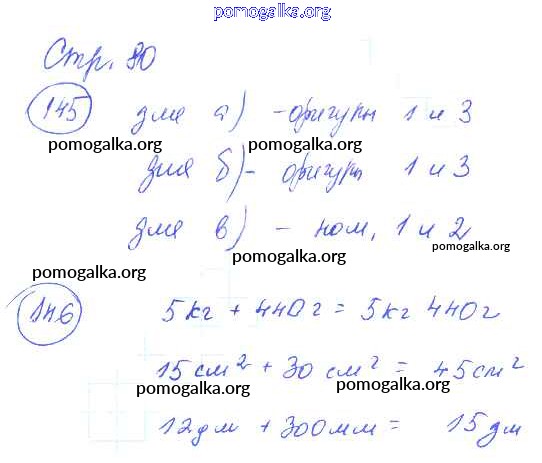 pomogalka.org
Стр. 80
145 для а) - фигуры 1 и 3
pomogalka.org pomogalka.org
для б) - фигуры 1 и 3
pomogalka.org pomogalka.org
для в) - ном, 1 и 2
pomogalka.org pomogalka.org
pomogalka.org
146 5кг + 440г = 5кг 440г
15 см² + 30 см² = 45см²
pomogalka.org pomogalka.org
12дм + 300мм = 15дм